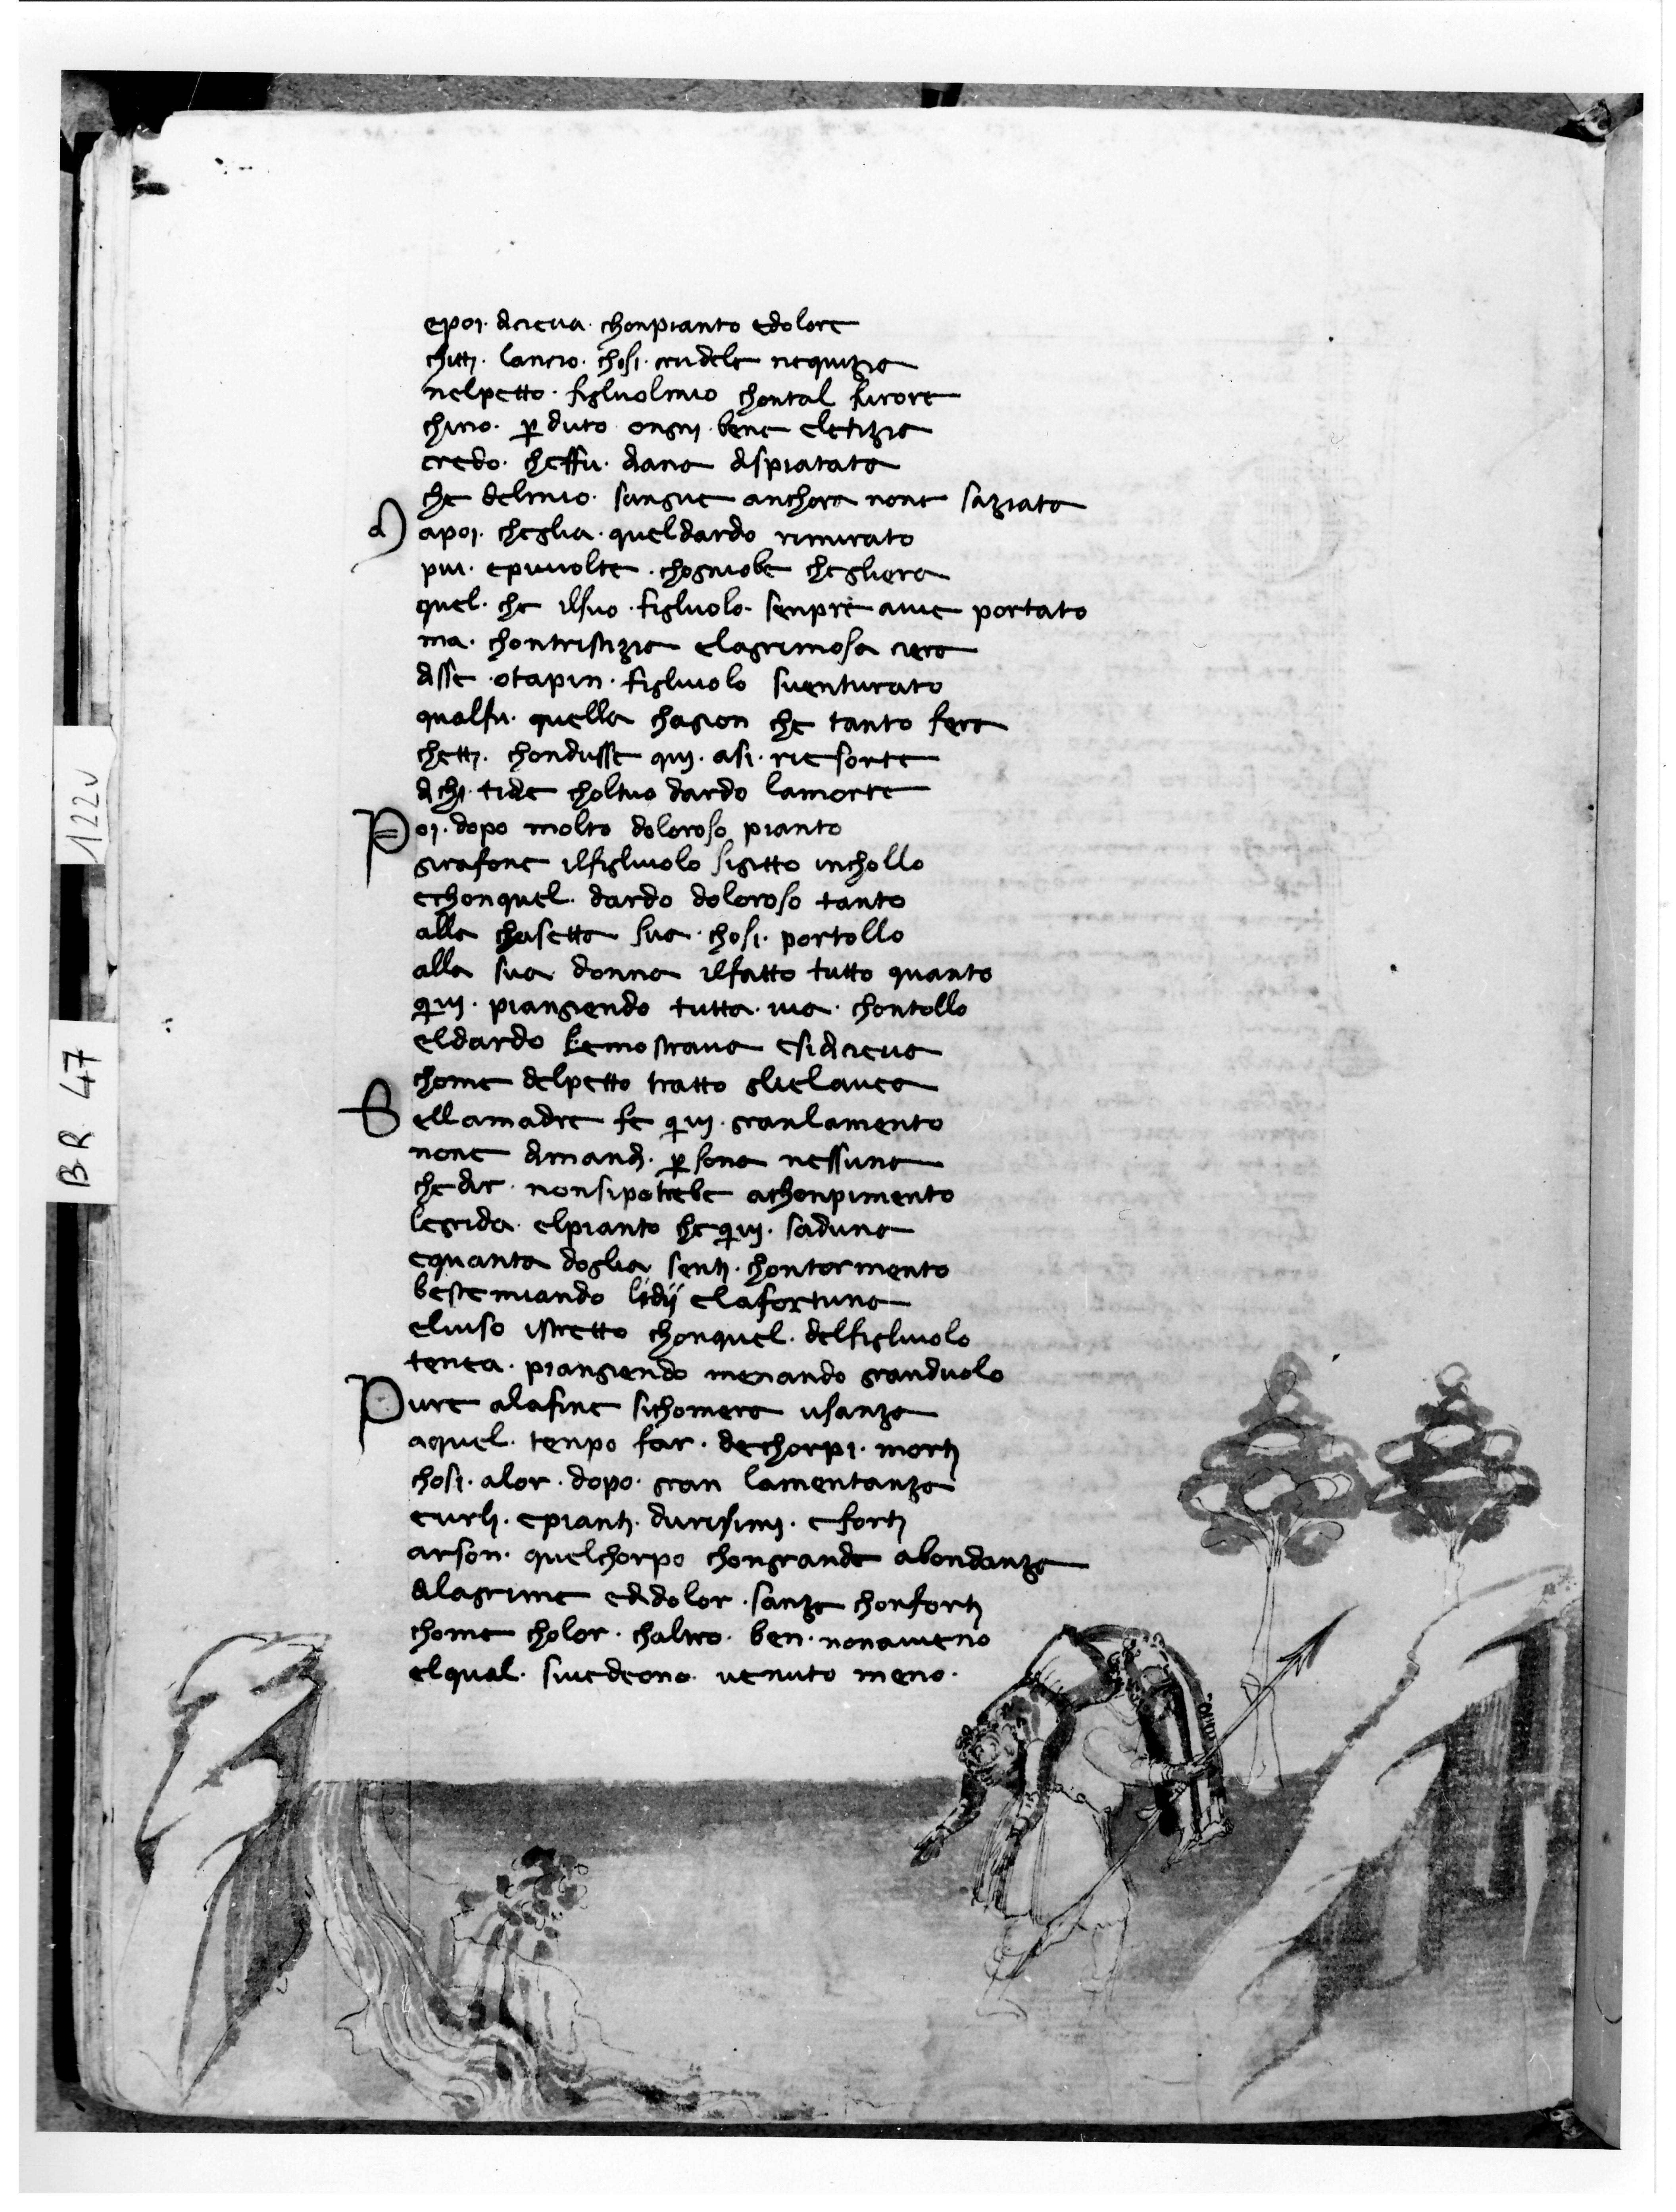 epoi. diceua. chonpianto edolore
chitti. lancio. chosi. crudele nequizia
nelpetto. figluolmio chontal furore
chio. perduto ongni. bene eletizia
credo. cheffu. diana dispiatata
che delmio. sangue anchora none saziata
d apoi. cheglia. queldardo rimirato
piu. epiuuolte. chogniobe chegliera
quel. che ilsuo. figluolo. senpre auie portato
ma. chontristizia elagrimosa ciera
disse. otapin. figluolo suenturato
qualfu. quella chagion che tanto fera
chetti. chondusse qui. asi. rie sorte
dichi. tidie choltuo dardo lamorte
Poi. dopo molto doloroso pianto
girafone ilfigluolo sigitto inchollo
echonquel. dardo doloroso tanto
alla chasetta sua. chosi. portollo
alla sua donna ilfatto tutto quanto
quiui. piangiendo tutta. uia. chontollo
eldardo lemostraua esidiceua
chome delpetto tratto glielauea
Sellamadre fe quiui. granlamento
none dimandi. persona nessuna
chedir. nonsipotrebe achonpimento
legrida. elpianto chequiui. saduna
equanta doglia senti. chontormento
bestemiando lidij elafortuna
eluiso istretto chonquel. delfigluolo
tenea. piangiendo menando granduolo
Pure alafine sichomera usanza
aquel. tenpo far. dechorpi. morti
chosi. alor. dopo. gran lamentanza
eurli. epianti. durisimi. eforti
arson. quelchorpo chongrande abondanza
dilagrime edidolor. sanza chonforti
chome cholor. chaltro. ben. nonauieno
elqual. siuedeono. uenuto meno.
122v
BR 47